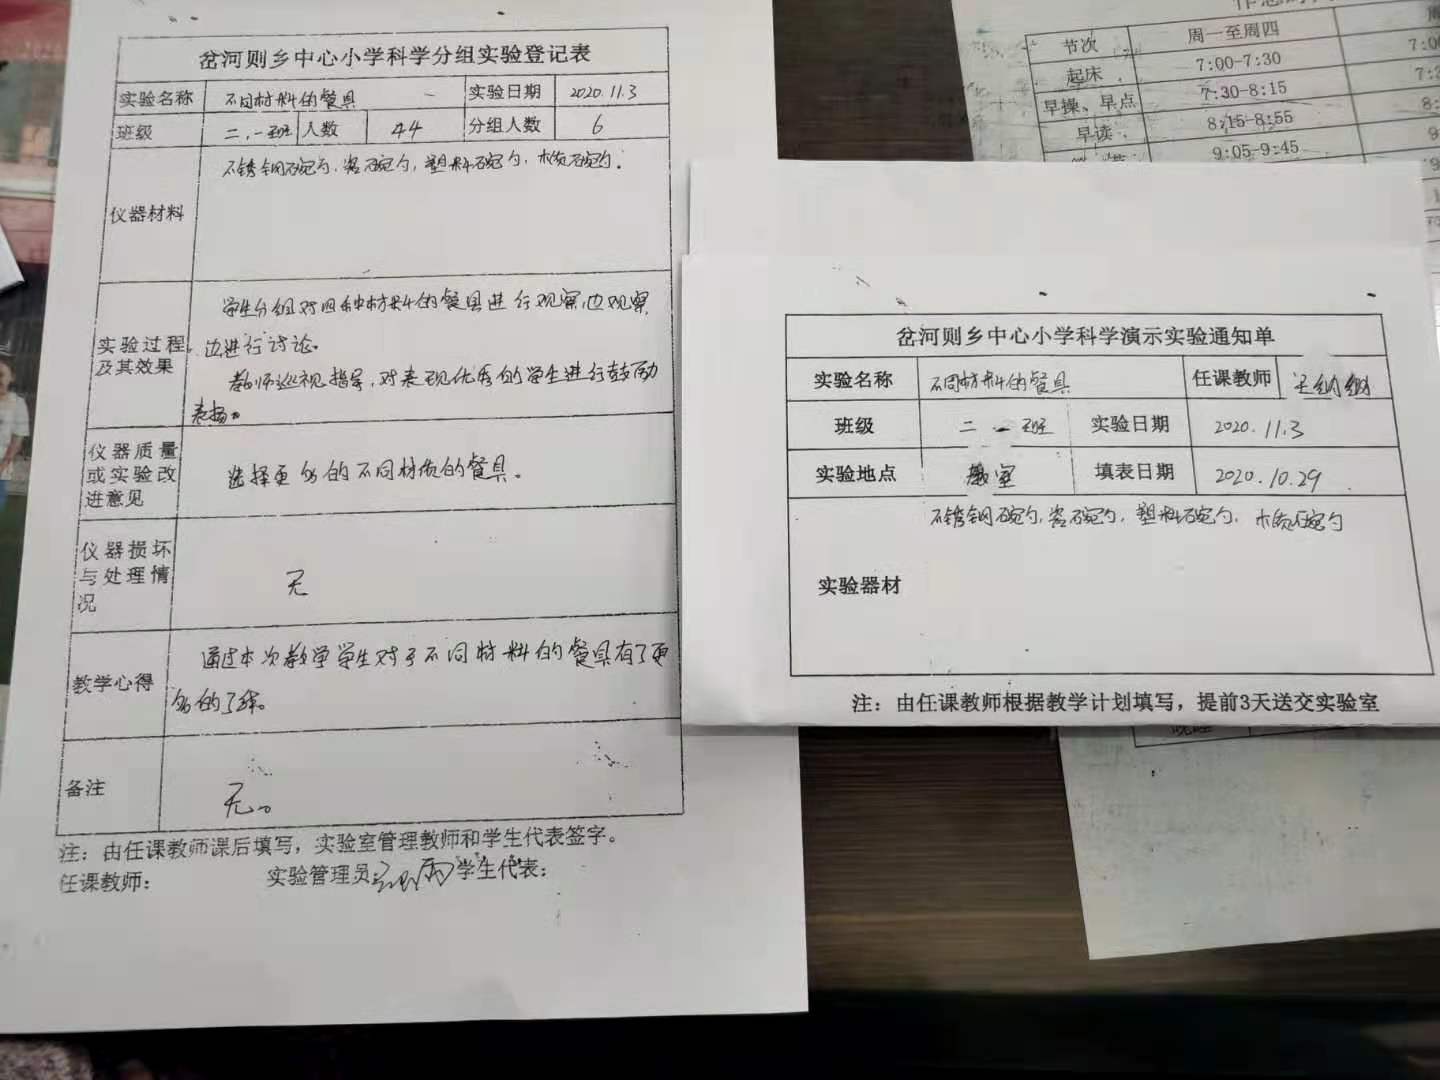 岔河则乡中心小学科学分组实验登记表
实验名称 不同材料的餐具 实验日期 2020.11.3
班级 二.一班 人数 44 分组人数 6
仪器材料 不锈钢碗勺,瓷碗勺,塑料碗勺,木质碗勺.
实验过程及其效果
学生分组对四种材料的餐具进行观察,边观察
边进行讨论。
教师巡视指导,对表现优秀的学生进行鼓励
表扬。
仪器质量或实验改进意见 选择更多的不同材质的餐具.
仪器损坏与处理情况 无
教学心得 通过本次教学学生对于不同材料的餐具有了更
多的了解。
备注 无。
注:由任课教师课后填写,实验室管理教师和学生代表签字。
任课教师: 实验管理员: 学生代表:
岔河则乡中心小学科学演示实验通知单
实验名称 不同材料的餐具 任课教师
班级 二.一班 实验日期 2020.11.3
实验地点 教室 填表日期 2020.10.29
实验器材 不锈钢碗勺,瓷碗勺,塑料碗勺,木质碗勺
注:由任课教师根据教学计划填写,提前3天送交实验室
节次 周一至周四
起床 7:00-7:30
早操、早点 7:30-8:15
早读 8:15-8:55
9:05-9:45